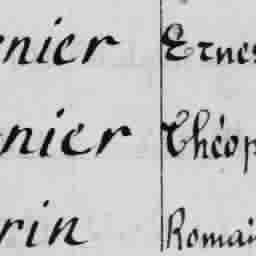 nier Ernes
nier Théop
rin Romai